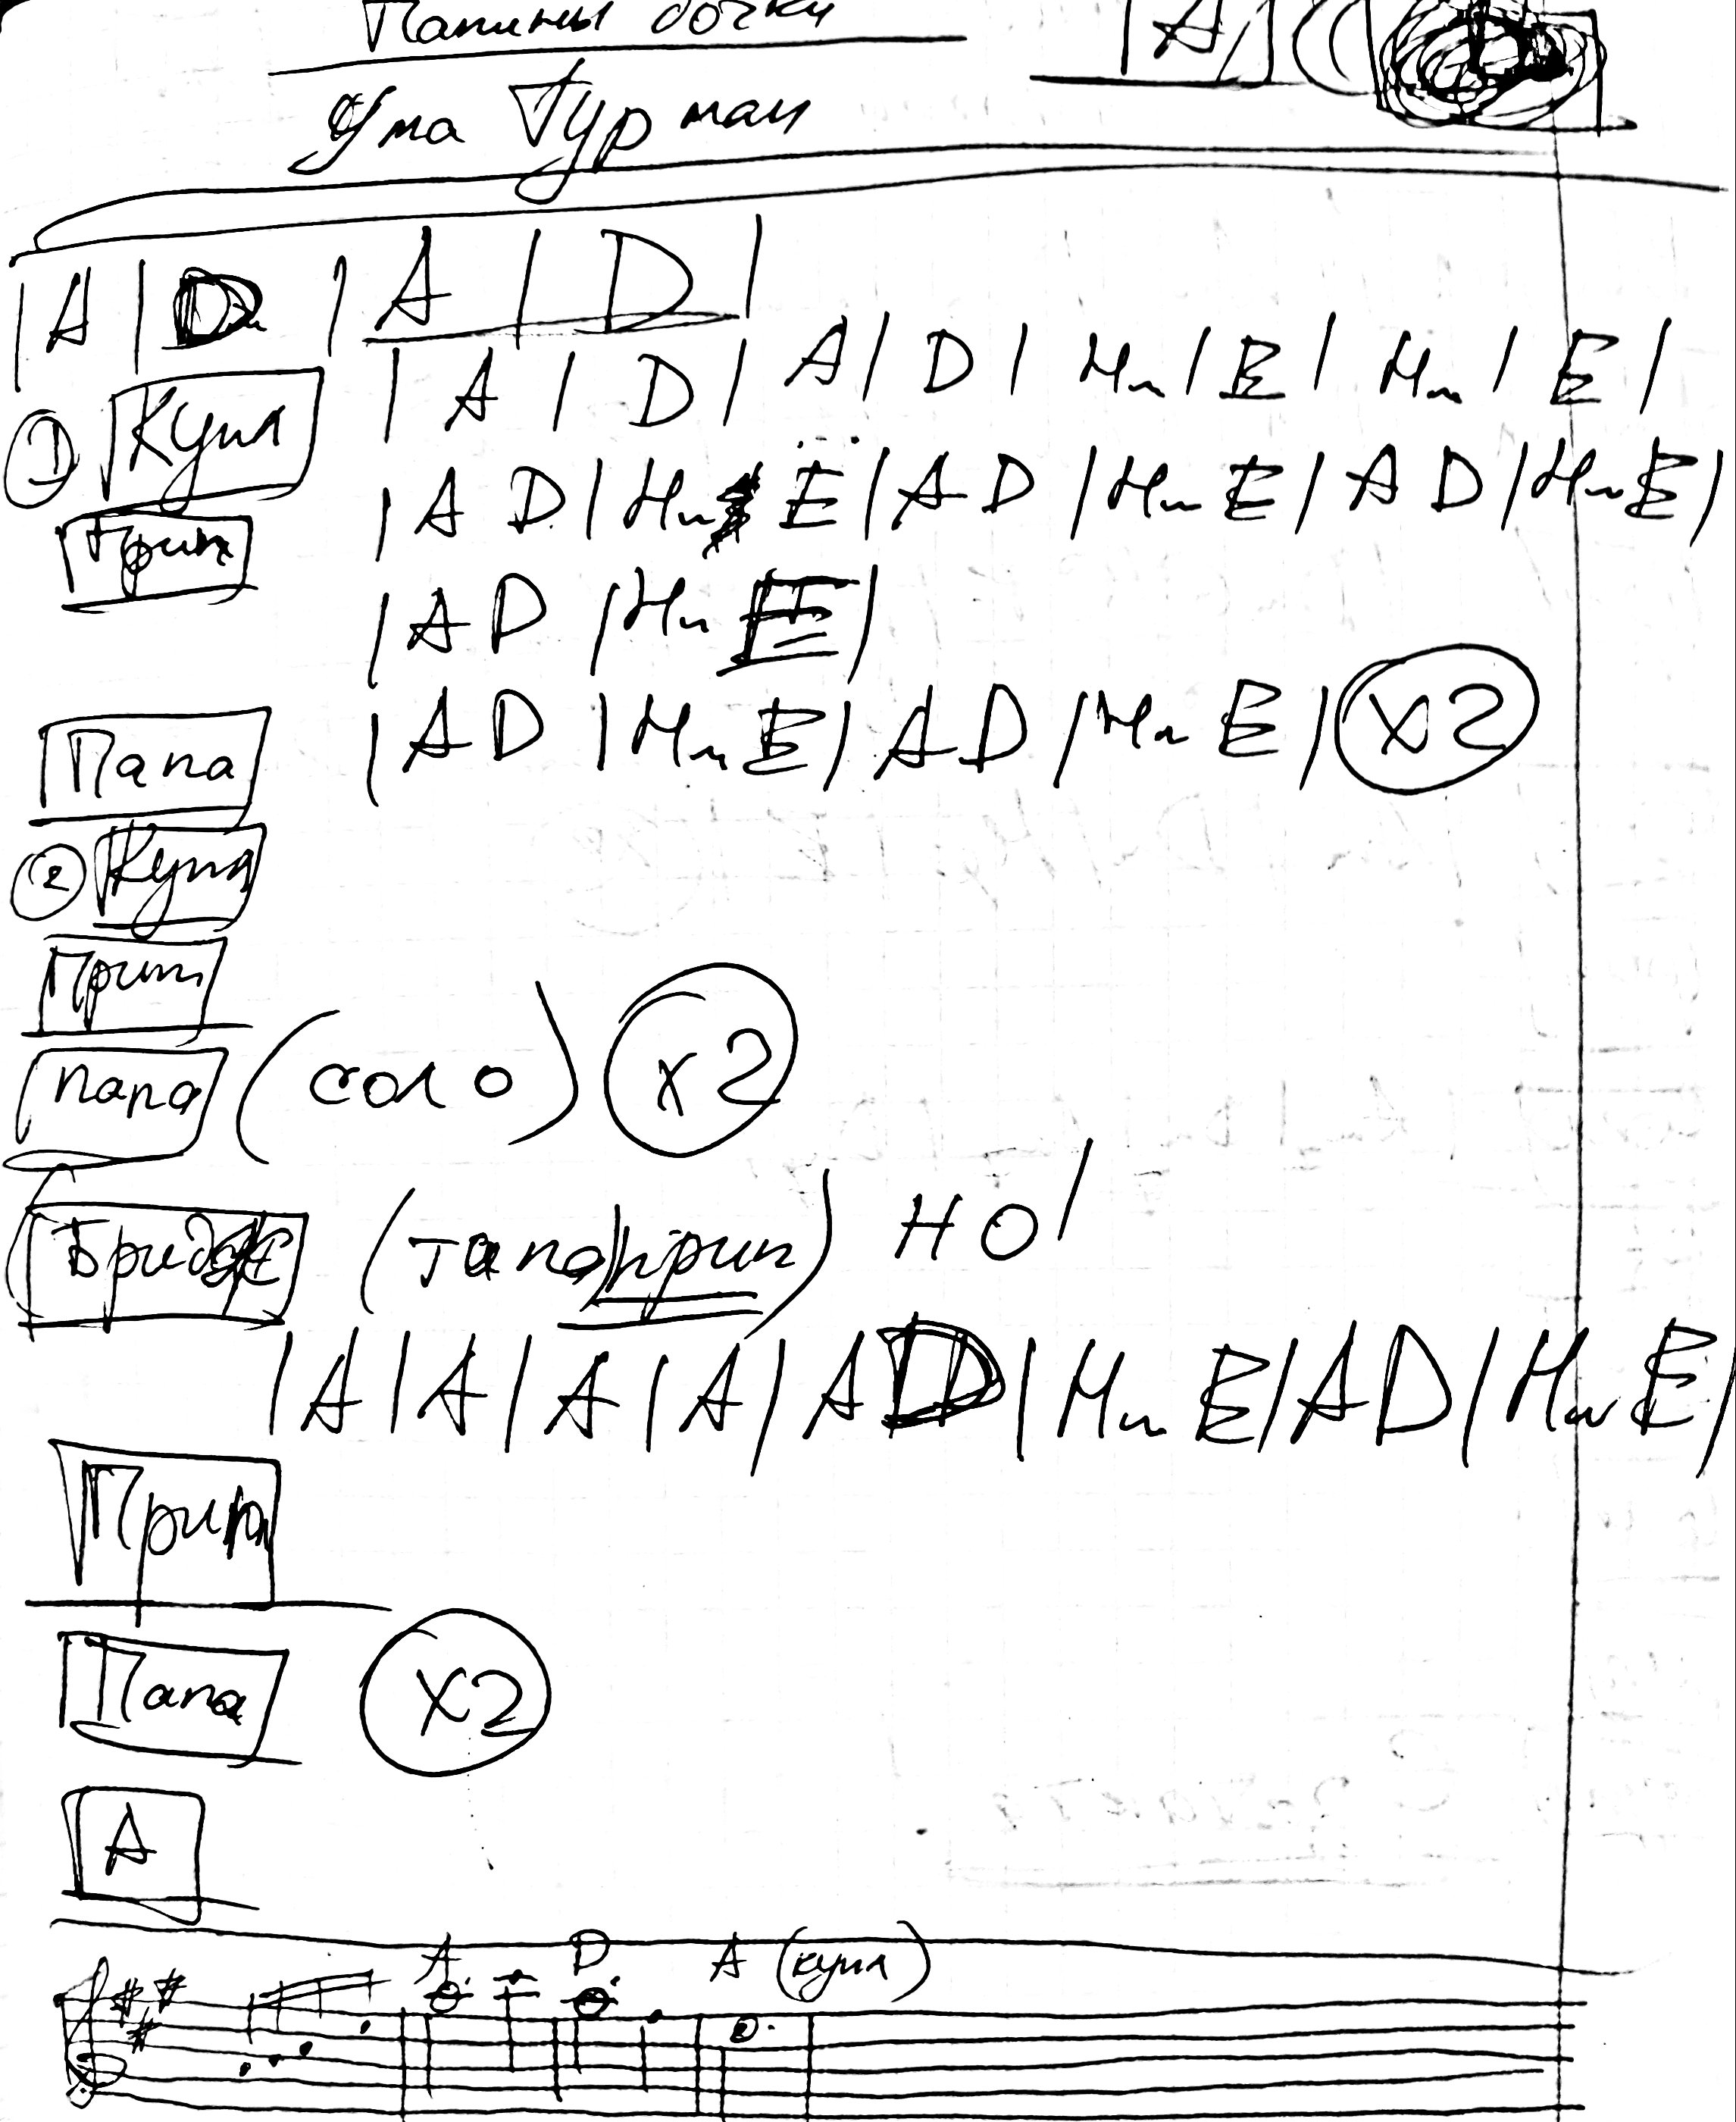 Папины дочки
Ума Турман
| A | D | A | D |
① Купл | A | D | A | D | Hm | E | Hm | E |
Прип | A D | Hm E | A D | Hm E | A D | Hm E |
| A D | Hm E |
Папа | A D | Hm E | A D | Hm E | x2
② Купл
Прип
папа (соло) x2
Бридж НО!
| A | A | A | A | A D | Hm E | A D | Hm E |
Прип
Папа x2
A
A D A (купл)